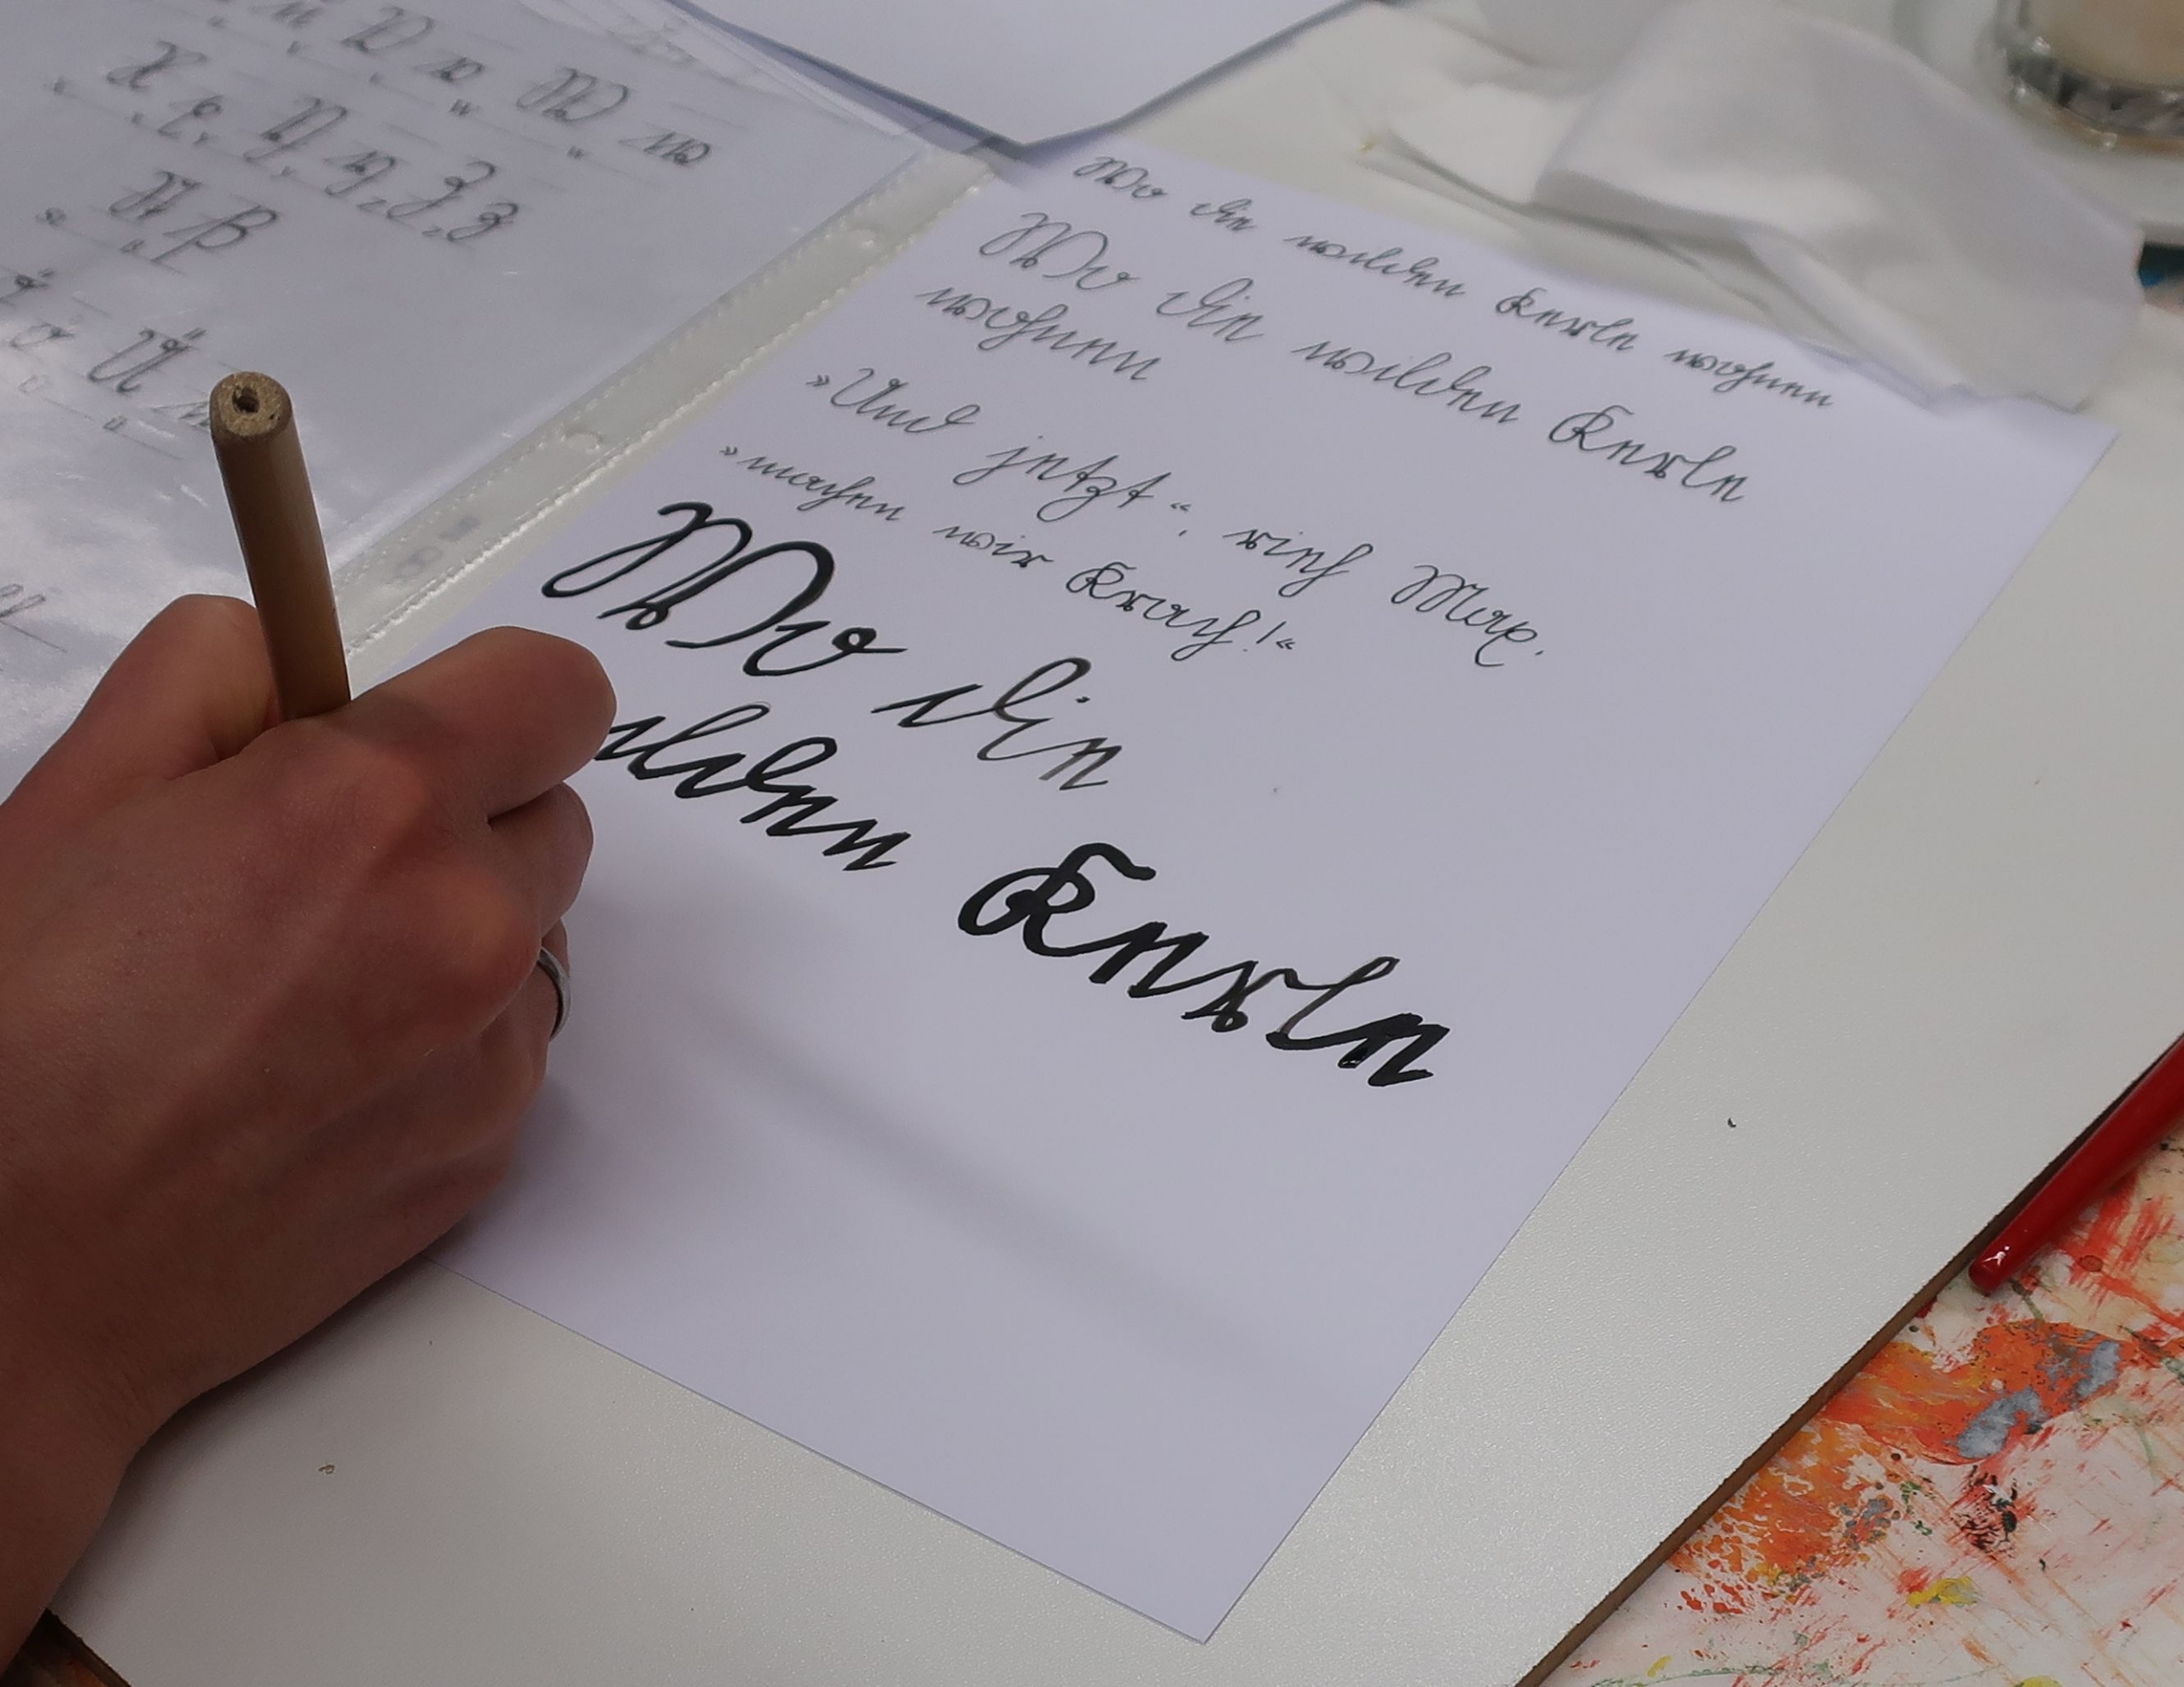 V v W w
X x Y y Z z
Wo die wilden Kerle wohnen
Wo die wilden Kerle
wohnen
»Und jetzt«, rief Max,
»machen wir Krach!«
Wo die
ilden Kerle